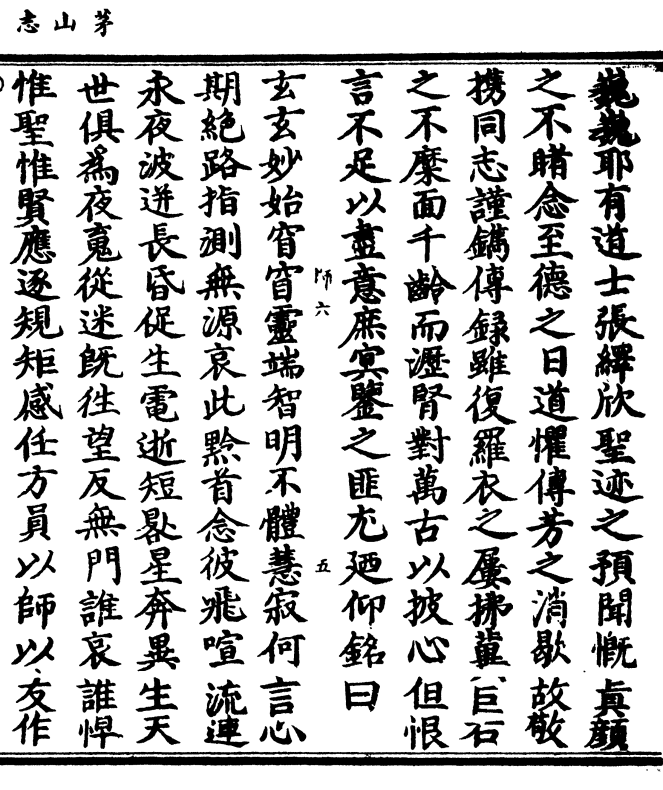 茅山志
巍巍耶有道士張繹欣聖迹之預聞慨眞顔
之不睹念至德之日道懼傳芳之消歇故敬
携同志謹鐫傳録雖復羅衣之屢拂冀巨石
之不糜面千齡而瀝腎對萬古以披心但恨
言不足以盡意庶冥鑒之匪尤廼仰銘曰
師六　五
玄玄妙始窅窅靈端智明不體慧寂何言心
期絶路指測無源哀此黔首念彼飛喧流連
永夜波迸長昏促生電逝短晷星奔異生天
世俱爲夜䰟從迷旣徃望反無門誰哀誰悍
惟聖惟賢應逐規矩感任方員以師以友作